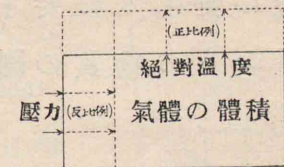 (正比例)
絕對溫度
壓力 (反比例) 氣體の體積